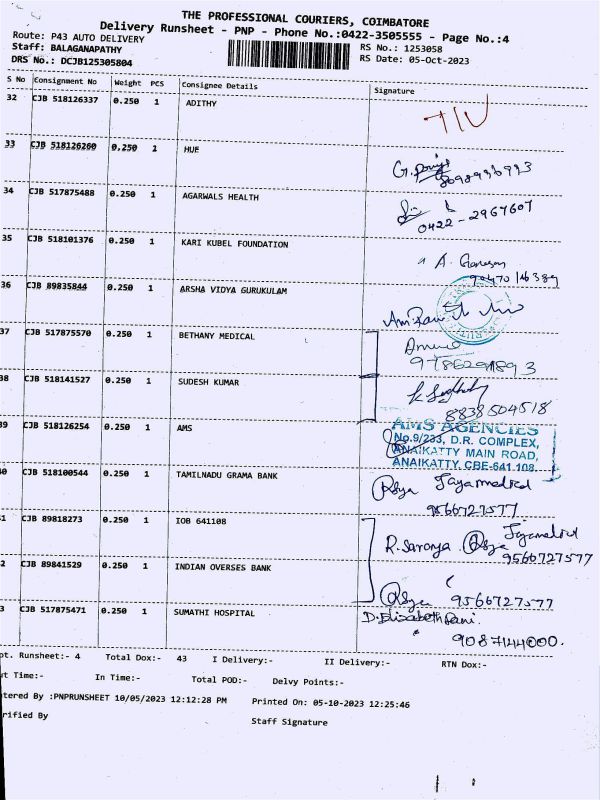 THE PROFESSIONAL COURIERS, COIMBATORE
Delivery Runsheet - PNP - Phone No.:0422-3505555 - Page No.:4
Route: P43 AUTO DELIVERY
Staff: BALAGANAPATHY RS No.: 1253058
DRS No.: DCJB125305804 RS Date: 05-Oct-2023
S No Consignment No Weight PCS Consignee Details Signature
32 CJB 518126337 0.250 1 ADITHY
33 CJB 518126260 0.250 1 HUE
34 CJB 517875488 0.250 1 AGARWALS HEALTH
0422-2967607
35 CJB 518101376 0.250 1 KARI KUBEL FOUNDATION
A. Ganesan
36 CJB 89835844 0.250 1 ARSHA VIDYA GURUKULAM
37 CJB 517875570 0.250 1 BETHANY MEDICAL
38 CJB 518141527 0.250 1 SUDESH KUMAR
8838504518
39 CJB 518126254 0.250 1 AMS
AMS AGENCIES
No.9/233, D.R. COMPLEX,
ANAIKATTY MAIN ROAD,
ANAIKATTY, CBE-641 108.
40 CJB 518100544 0.250 1 TAMILNADU GRAMA BANK
9566727577
41 CJB 89818273 0.250 1 IOB 641108
R. Saronya
9566727577
42 CJB 89841529 0.250 1 INDIAN OVERSES BANK
9566727577
43 CJB 517875471 0.250 1 SUMATHI HOSPITAL
D. Elisabeth Rani.
9087144000.
pt. Runsheet:- 4 Total Dox:- 43 I Delivery:- II Delivery:- RTN Dox:-
ut Time:- In Time:- Total POD:- Delvy Points:-
tered By :PNPRUNSHEET 10/05/2023 12:12:28 PM Printed On: 05-10-2023 12:25:46
rified By Staff Signature